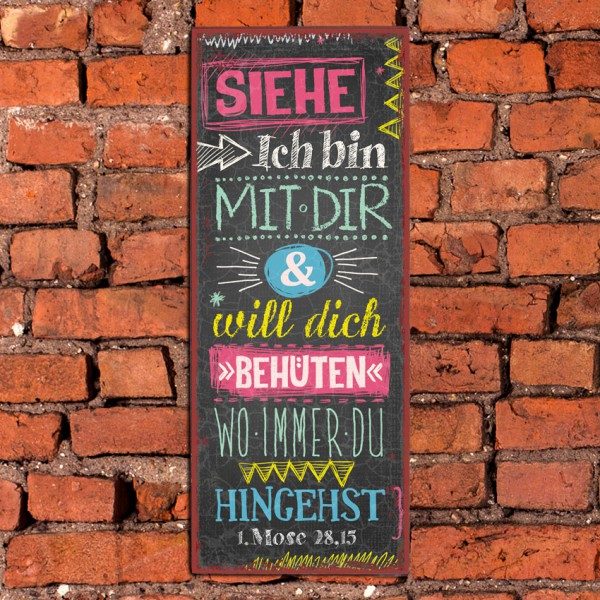 SIEHE
Ich bin
MIT·DIR
&
will dich
»BEHÜTEN«
WO·IMMER·DU
HINGEHST
1.Mose 28,15